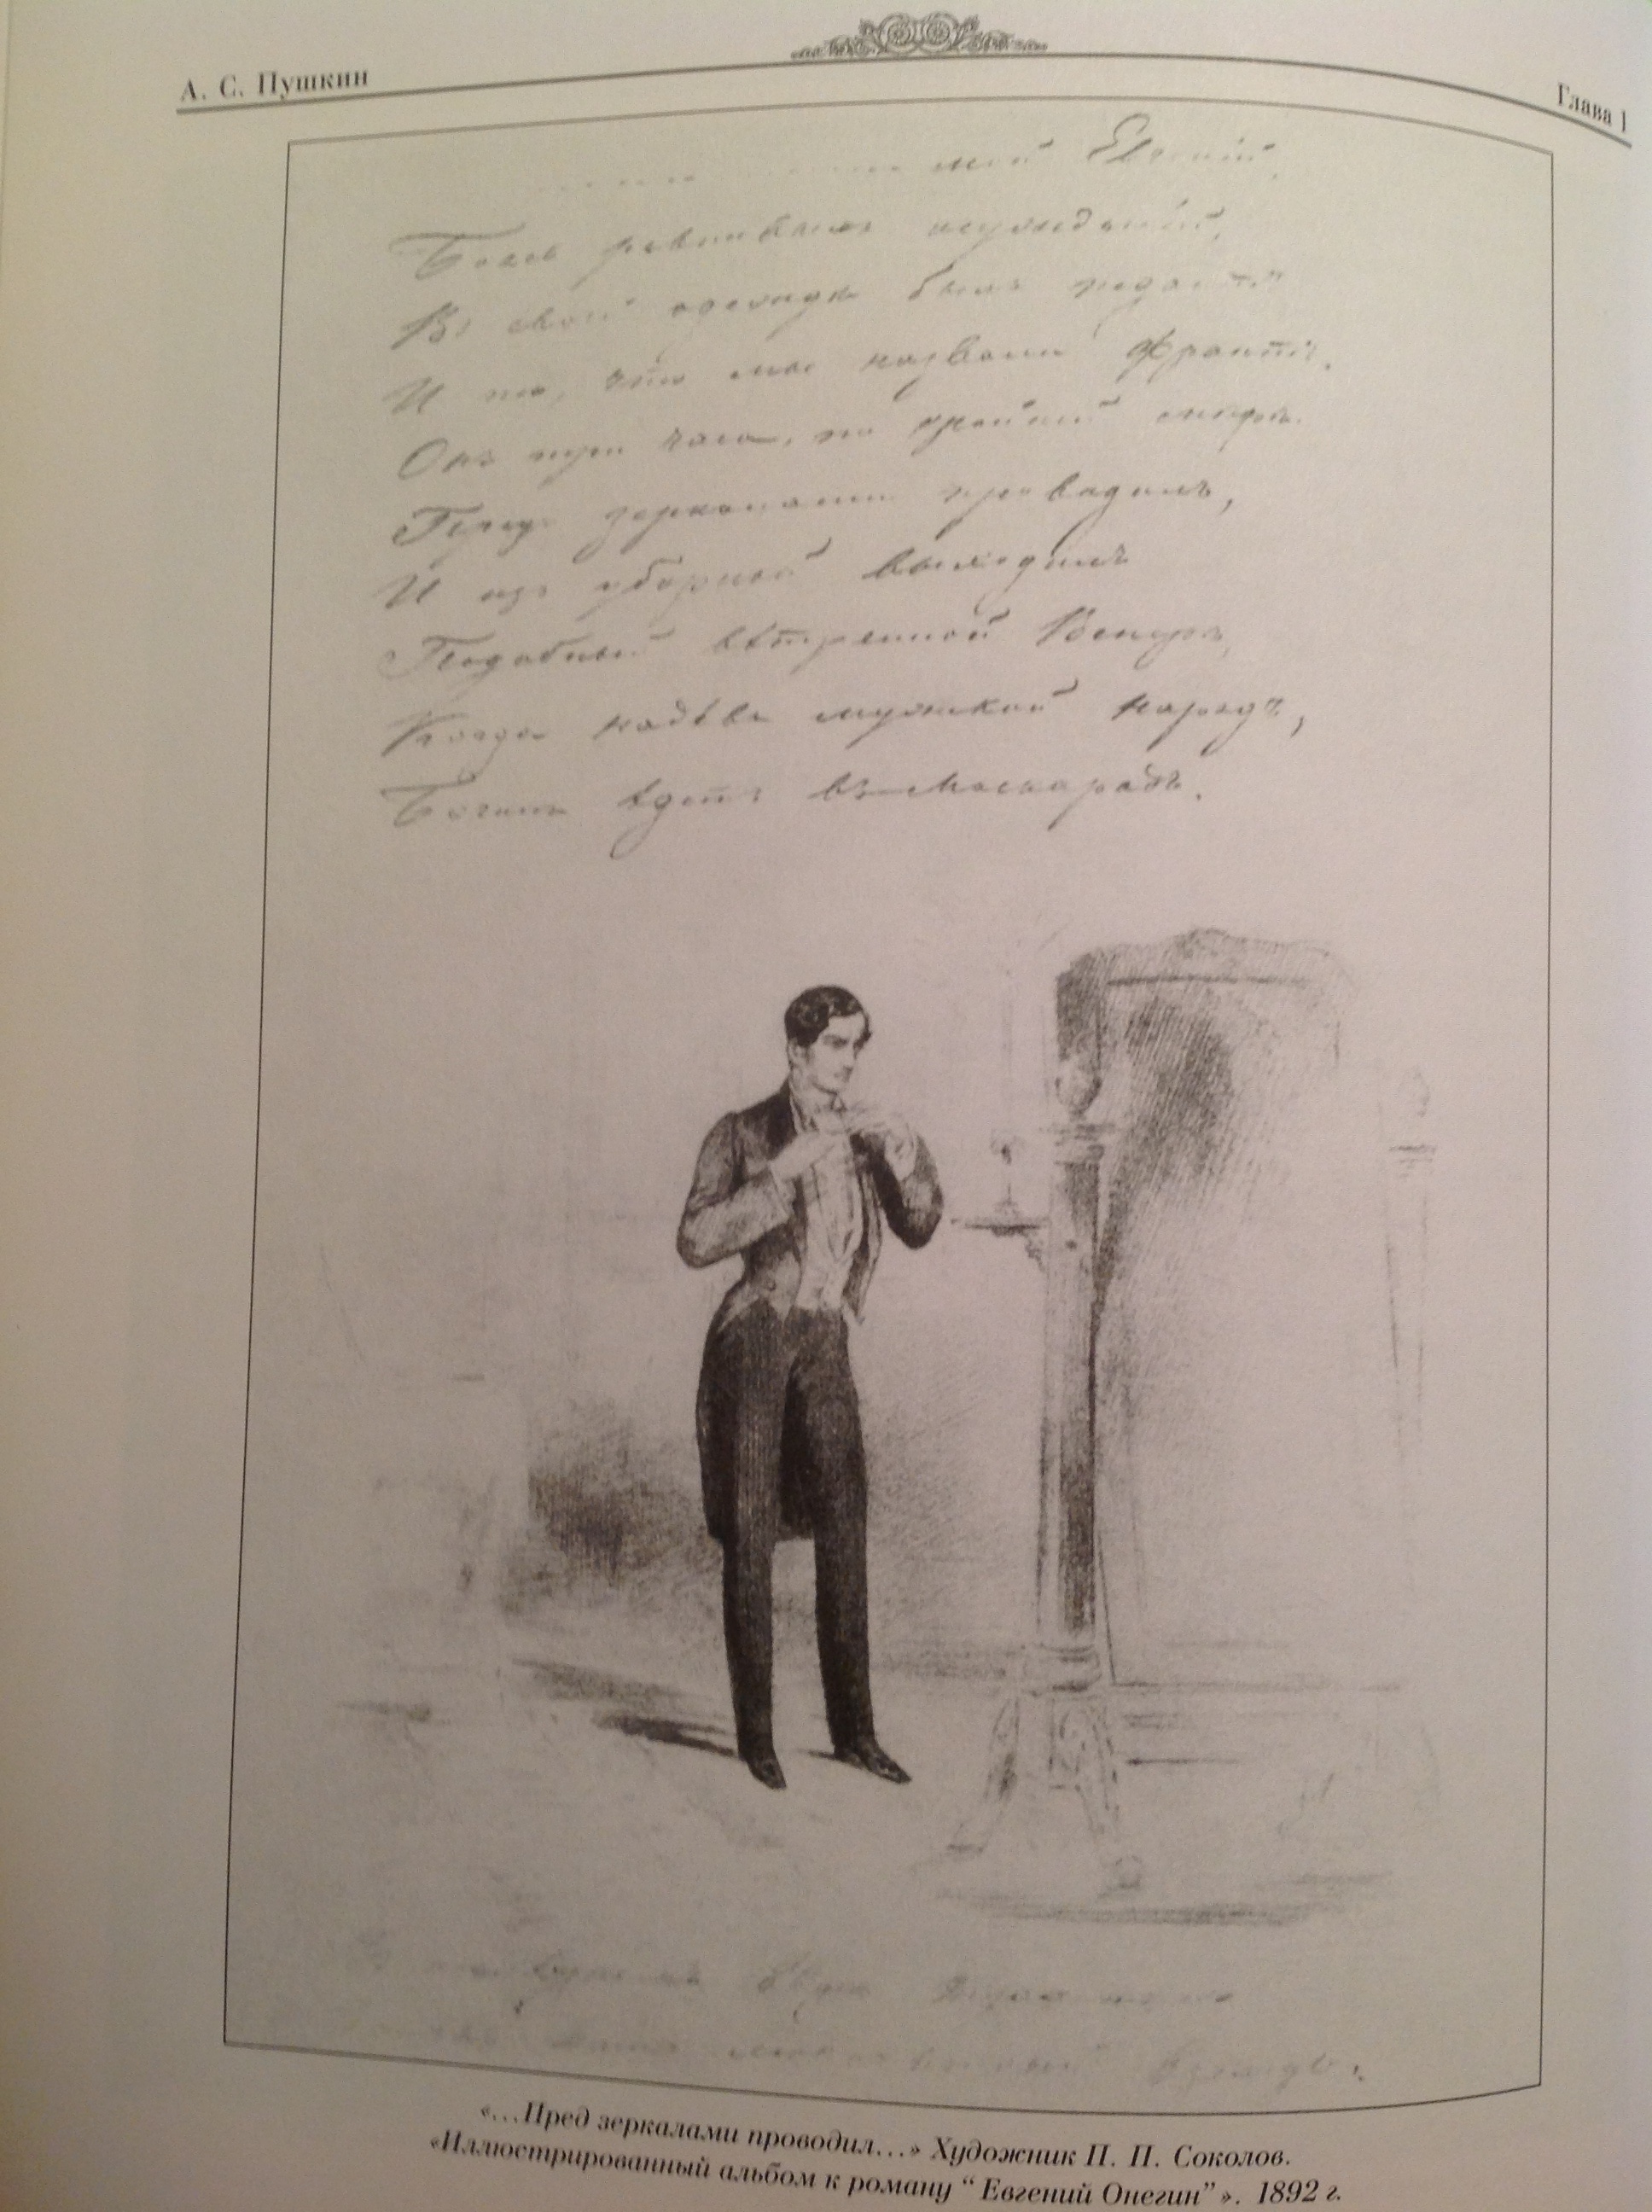 А. С. Пушкин
Глава 1
мой Евгеній,
Боясь ревнивыхъ осужденій,
Въ своей одеждѣ былъ педантъ
И то, что мы назвали франтъ.
Онъ три часа, по крайней мѣрѣ
Предъ зеркалами проводилъ,
И изъ уборной выходилъ
Подобный вѣтренной Венерѣ,
Когда надѣвъ мужской нарядъ,
Богиня ѣдетъ въ маскарадъ.
взявъ
вашъ любопытный взглядъ,
«...Пред зеркалами проводил...» Художник П. П. Соколов.
«Иллюстрированный альбом к роману “Евгений Онегин”». 1892 г.